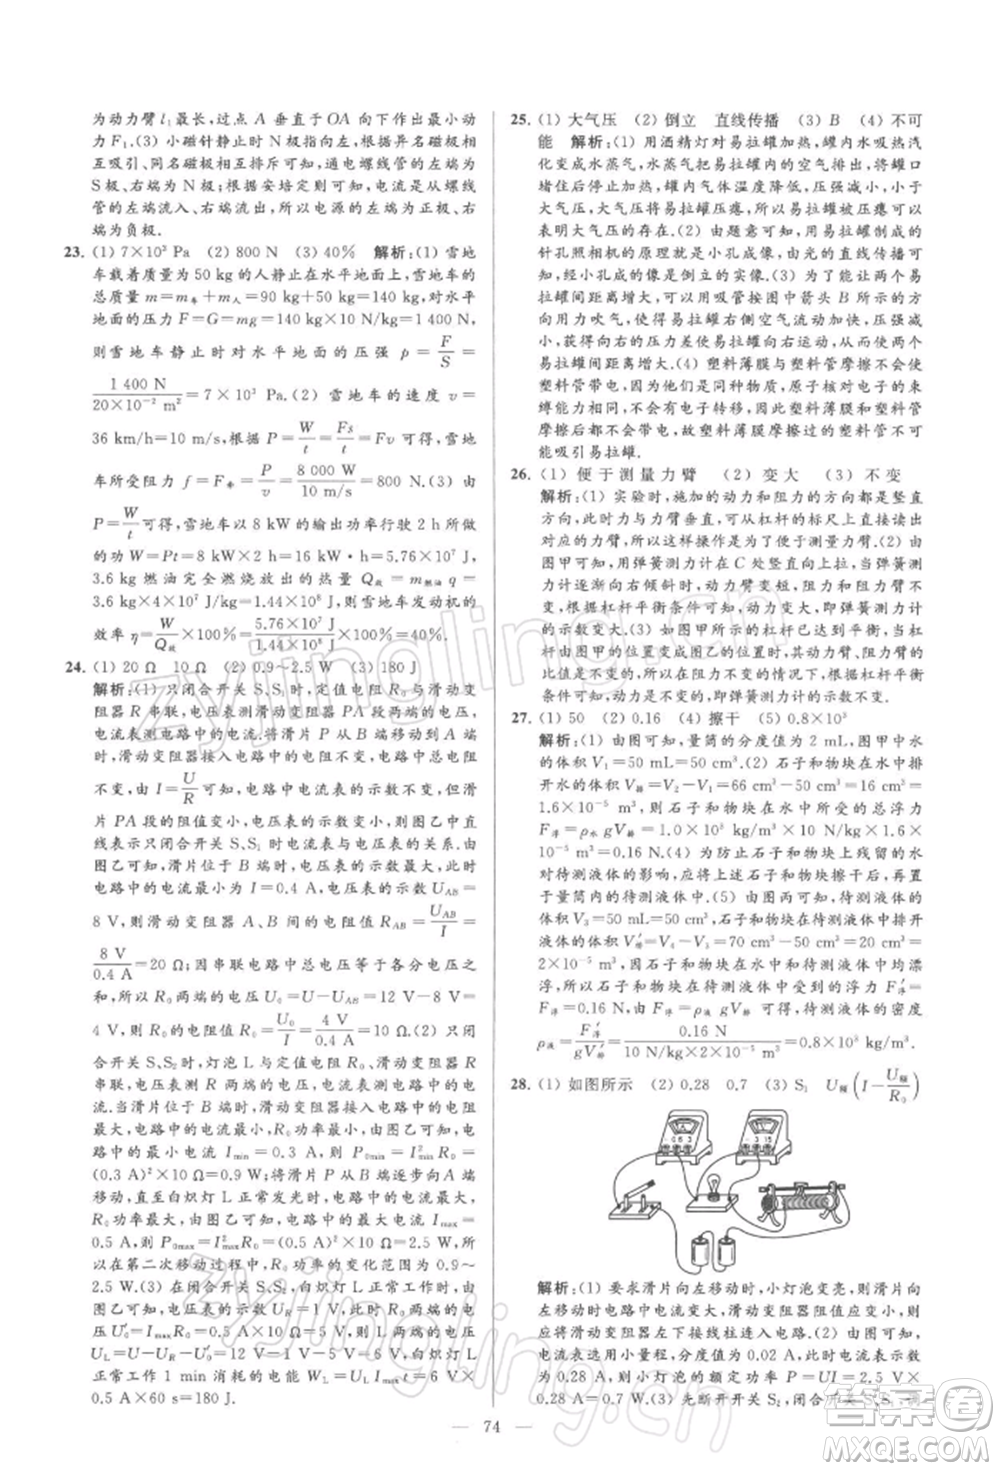 为动力臂 l₁ 最长,过点 A 垂直于 OA 向下作出最小动
力 F₁.(3) 小磁针静止时 N 极指向左,根据异名磁极相
互吸引、同名磁极相互排斥可知,通电螺线管的左端为
S 极、右端为 N 极;根据安培定则可知,电流是从螺线
管的左端流入、右端流出,所以电源的左端为正极、右端
为负极.
23. (1) 7×10³ Pa (2) 800 N (3) 40% 解析:(1) 雪地
车载着质量为 50 kg 的人静止在水平地面上,雪地车的
总质量 m=m车+m人=90 kg+50 kg=140 kg,对水平
地面的压力 F=G=mg=140 kg×10 N/kg=1 400 N,
则雪地车静止时对水平地面的压强 p=F/S=
1 400 N/(20×10⁻² m²)=7×10³ Pa.(2) 雪地车的速度 v=
36 km/h=10 m/s,根据 P=W/t=Fs/t=Fv 可得,雪地
车所受阻力 f=F牵=P/v=8 000 W/(10 m/s)=800 N.(3) 由
P=W/t可得,雪地车以 8 kW 的输出功率行驶 2 h 所做
的功 W=Pt=8 kW×2 h=16 kW·h=5.76×10⁷ J,
3.6 kg 燃油完全燃烧放出的热量 Q放=m燃油q=
3.6 kg×4×10⁷ J/kg=1.44×10⁸ J,则雪地车发动机的
效率 η=W/Q放×100%=(5.76×10⁷ J)/(1.44×10⁸ J)×100%=40%.
24. (1) 20 Ω 10 Ω (2) 0.9~2.5 W (3) 180 J
解析:(1) 只闭合开关 S、S₁ 时,定值电阻 R₀ 与滑动变
阻器 R 串联,电压表测滑动变阻器 PA 段两端的电压,
电流表测电路中的电流.因滑片移动时,滑动变阻器接
入电路中的电阻不变,电路中的总电阻不变,电源电压
不变,由 I=U/R 可知,电路中电流表的示数不变,当滑
片 PA 段的阻值变小,电压表的示数变小,图乙中的水平
直线表示只闭合开关 S、S₁ 时电流表与电压表的示数关系.
由图乙可知,滑片位于 B 端时,电压表的示数最大,此时
电路中的电流 I=0.4 A,电压表的示数最大为 U_AB=
8 V,则滑动变阻器 A、B 间的电阻值 R_AB=U_AB/I=
8 V/0.4 A=20 Ω;因串联电路中总电压等于各部分电压之
和,所以 R₀ 两端的电压 U₀=U−U_AB=12 V−8 V=
4 V,则 R₀ 的电阻值 R₀=U₀/I=4 V/0.4 A=10 Ω.(2) 只闭
合开关 S、S₂ 时,灯泡 L 与定值电阻 R₀、滑动变阻器 R
串联,电压表测 R 两端的电压,当滑片 P 在 B 端时,滑
动变阻器接入电路的电阻最大,电路中的电流最小,定
值电阻 R₀ 的功率最小.由图乙可知,电路中的最小
电流 I_min=0.3 A,R₀ 的最小功率 P₀min=I²_min R₀=
(0.3 A)²×10 Ω=0.9 W;滑片 P 从 B 端逐步向 A 端
移动,直至白炽灯 L 正常发光时,电路中的电流最大,
R₀ 功率最大,由图乙可知,电路中的最大电流 I_max=
0.5 A,则 P₀max=I²_max R₀=(0.5 A)²×10 Ω=2.5 W,所以
在第二次移动过程中,R₀ 的功率的变化范围为 0.9~
2.5 W.(3) 在闭合开关 S、S₂,白炽灯 L 正常工作时,由图
乙可知,电压表的示数 U_R=1 V,此时 R₀ 两端的电压
U₀′=I_max R₀=0.5 A×10 Ω=5 V,则灯泡 L 两端的电压
U_L=U−U_R−U₀′=12 V−1 V−5 V=6 V,则白炽灯 L
正常工作 1 min 消耗的电能 W_L=U_L I_max t=6 V×
0.5 A×60 s=180 J.
25. (1) 大气压 (2) 倒立 直线传播 (3) B (4) 不可
能 解析:(1) 用酒精灯对易拉罐加热,罐内水吸热汽
化成水蒸气,水蒸气把易拉罐内的空气排出,将罐口
堵住后停止加热,罐内气体温度降低,气压减小,小于
大气压,大气压将易拉罐压瘪,易拉罐变瘪的现象可
表明大气压的存在.(2) 由题意可知,用易拉罐制成的
针孔照相机的原理是小孔成像,由光的直线传播可
知,小孔成的像是倒立的实像.(3) 为了能让两个易
拉罐间距离减小,可以用吸管按图中箭头 B 所示的方
向用力吹气,使得易拉罐右侧空气流动加快,压强减
小,易拉罐在左侧较大压强的作用下向右运动,两个
易拉罐间距离增大.(4) 塑料薄膜与塑料管摩擦后,
塑料管带电,因它们是同种物质,原子核对电子的束
缚能力相同,不会有电子转移,因此塑料薄膜和塑料管
摩擦后都不会带电,故塑料薄膜摩擦过的塑料管不可
能吸引易拉罐.
26. (1) 便于测量力臂 (2) 变大 (3) 不变
解析:(1) 实验时,施加的动力和阻力的方向都是竖直
方向,力的方向与力臂垂直,可以从杠杆的标尺上读出
对应的力臂,所以这样操作是为了便于测量力臂.(2) 由
图甲可知,原来弹簧测力计在 C 处竖直向上拉,当弹簧测
力计逐渐向右倾斜时,动力臂变短,阻力和阻力臂不
变,根据杠杆平衡条件可知,动力变大,即弹簧测力计
的示数变大.
比值是不变的,阻力是不变的,根据杠杆平衡
条件可知,动力是不变的,即弹簧测力计的示数不变.
27. (1) 50 (2) 0.16 (4) 擦干 (5) 0.8×10³
解析:(1) 由图可知,量筒的分度值为 2 mL,图甲中水
的体积 V₁=50 mL=50 cm³.(2) 石子和物块在水中排
开水的体积 V排=V₂−V₁=66 cm³−50 cm³=16 cm³=
1.6×10⁻⁵ m³,则石子和物块在水中所受的总浮力
F浮=ρ水gV排=1.0×10³ kg/m³×10 N/kg×1.6×
10⁻⁵ m³=0.16 N.(4) 为了防止石子和物块上残留的水
对待测液体的影响,应将石子和物块擦干.(5) 由图可知,待测液体放
置于量筒内的待测液体的体积 V₃=50 mL=50 cm³,石子和物块在待测液体中排开
液体的体积 V排′=V₄−V₃=70 cm³−50 cm³=20 cm³=
2×10⁻⁵ m³,因石子和物块在待测液体中受到的浮力
F浮′=F浮=0.16 N,由 F浮=ρ液gV排可得,待测液体的密度
ρ液=F浮′/(gV排′)=0.16 N/(10 N/kg×2×10⁻⁵ m³)=0.8×10³ kg/m³.
28. (1) 如图所示 (2) 0.28 0.7 (3) S₁ U额(I−U额/R₀)
解析:(1) 要求滑片向左移动时,小灯泡变亮,则滑片向
左移动时电路中电流变大,滑动变阻器阻值应变小,故
滑动变阻器左下接线柱连入电路中.(2) 由图可知,电
流表选小量程,分度值为 0.02 A,则此时电流表示数
为 0.28 A,则小灯泡的额定功率 P=UI=2.5 V×
0.28 A=0.7 W.(3) 先断开开关 S₂,闭合开关 S、S₁,调
— 74 —
zyjingling.cn
zyjingling.cn
答案卷
MXQE.COM